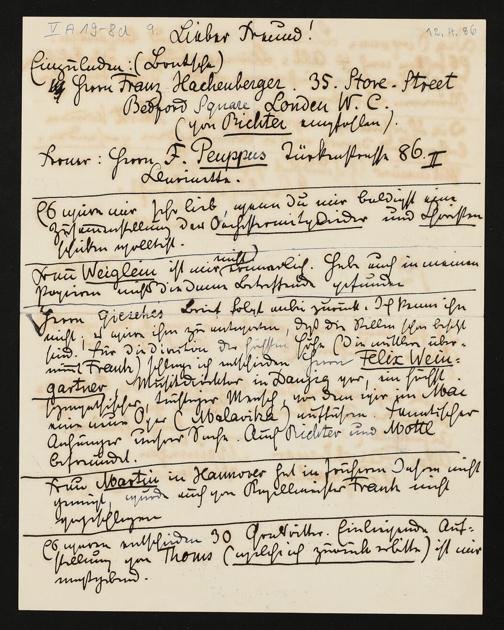 V A 19-8d 9.
12. II. 86
Lieber Freund!
Einzuladen: (Deutsche)
Herrn Franz Hachenberger. 35. Store-Street
Bedford Square. London W. C.
(von Richter empfohlen).
Ferner: Herrn F. Peuppus Türkenstrasse 86. II
Clarinette.
Es wäre mir sehr lieb, wenn du mir baldigst eine
Zusammenstellung der Orchestermitglieder und
schicken wolltest.
Frau Weiglein ist mir nicht erinnerlich. Habe auch in meinen
Papieren nichts die Dame Betreffende gefunden
Herrn Brief folgt anbei zurück. Ich kenne ihn
nicht, es wäre ihm zu antworten, dass die Stellen schon besetzt
sind. Für die Direction der Höhe (Die mittlere über-
nimmt Frank) schlage ich entschieden Herrn Felix Wein-
gartner, Musikdirektor in Danzig vor, ein höchst
sympathischer, tüchtiger Mensch, von dem wir im Mai
eine neue Oper (Malavika) aufführen. Fanatischer
Anhänger unsrer Sache. Auch Richter und Mottl
befreundet.
Frau Martin in Hannover hat in früheren Jahren nicht
genügt, wurde auch von Kapellmeister Frank nicht
vorgeschlagen
Es waren entschieden 30 Gralsritter. Einliegende Auf-
stellung von Thoms (welche ich zurück erbitte) ist mir
massgebend.